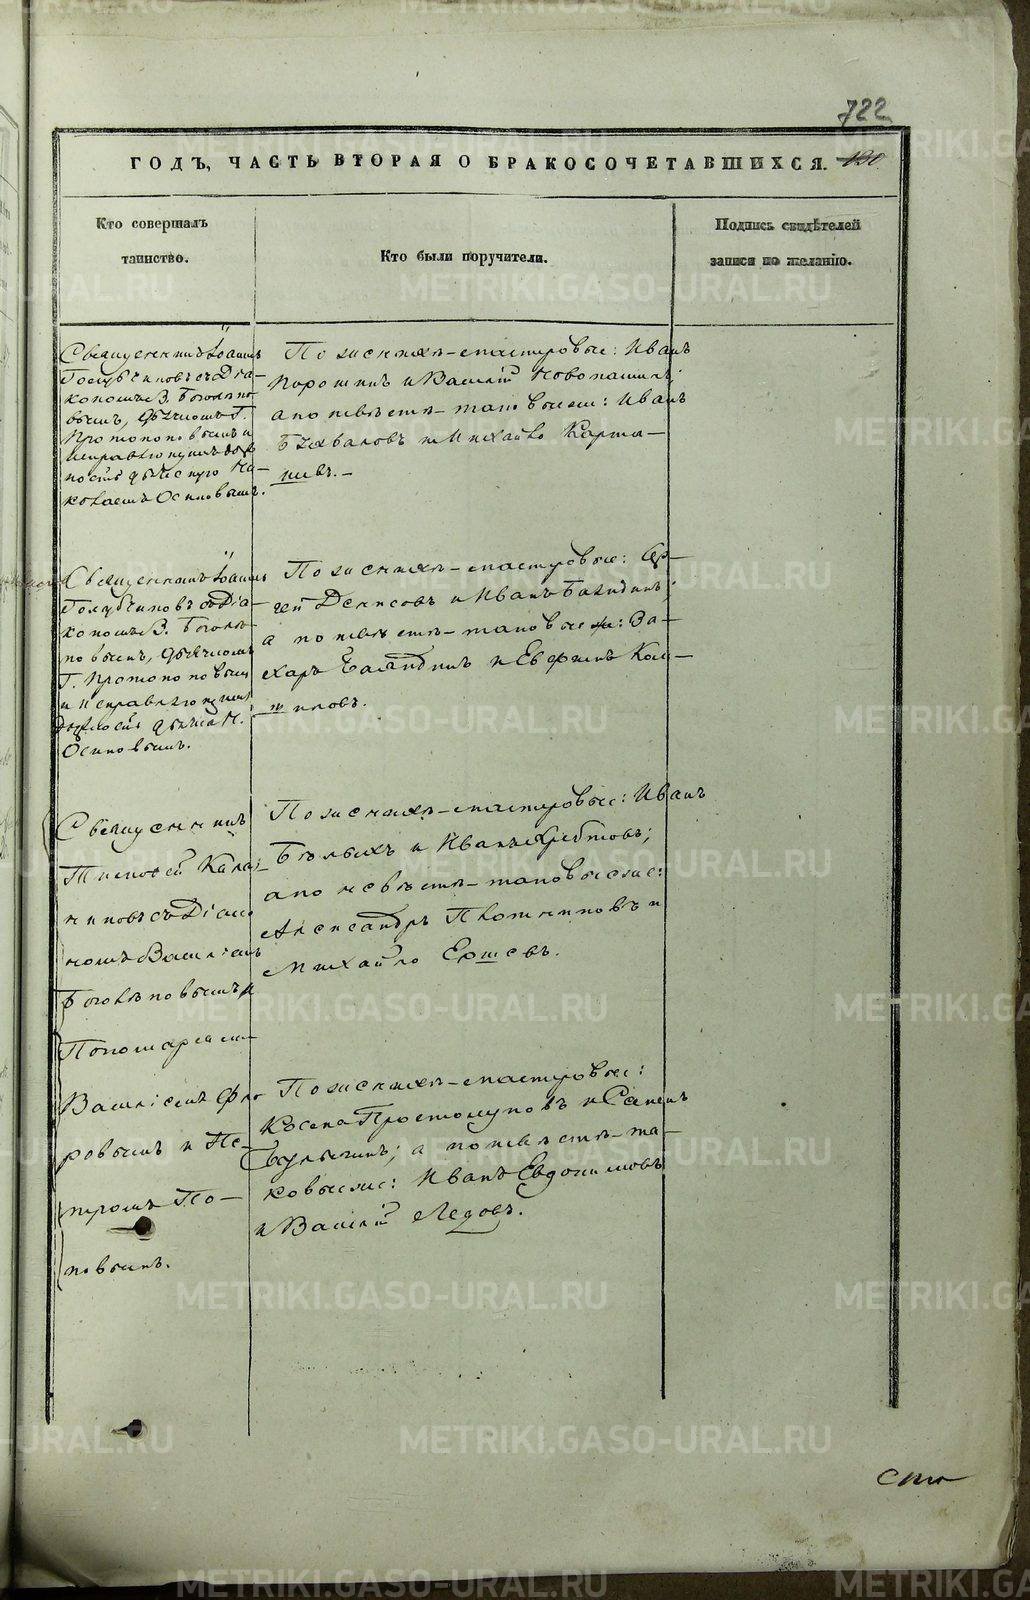 722
ГОДЪ, ЧАСТЬ ВТОРАЯ О БРАКОСОЧЕТАВШИХСЯ.
Кто совершалъ
таинство.
Кто были поручители.
Подпись свидѣтелей
записи по желанію.
Священникъ Іоаннъ
Голубчиковъ съ Діа-
кономъ В. Боголѣпо
вымъ, дьячкомъ Г.
Протопоповымъ и
исправляющимъ долж
ность дьяческую Ни-
колаемъ Осиповымъ.
По женихѣ-мастеровые: Иванъ
Порошинъ и Василій Новопашинъ;
а по невѣстѣ-таковыеж: Иванъ
Михайло
Священникъ Іоаннъ
Голубчиковъ съ Діа-
кономъ В. Боголѣ-
повымъ, дьячкомъ
Г. Протопоповымъ
и исправляющимъ
должность дьячка Н.
Осиповымъ.
По женихѣ-мастеровые: Сер-
гѣй Денисовъ и Иванъ Баландинъ;
а по невѣстѣ-таковые ж: За-
харъ Баландинъ и Евфимъ
Священникъ
Тимофей
съ Діако
номъ Василіемъ
Боголѣповымъ и
Пономарями
Василіемъ Фло
ровымъ и Пе-
тромъ По-
повымъ.
По женихѣ-мастеровые: Иванъ
Бѣлыхъ и Иванъ Хребтовъ;
а по невѣстѣ-таковыеже:
Александръ Плотниковъ и
Михайло Ершевъ.
По женихѣ-мастеровые:
Косьма Простолуповъ и Семенъ
Булычинъ; а по невѣстѣ-та-
ковыеже: Иванъ Евдокимовъ
и Василій Ледовъ.
METRIKI.GASO-URAL.RU